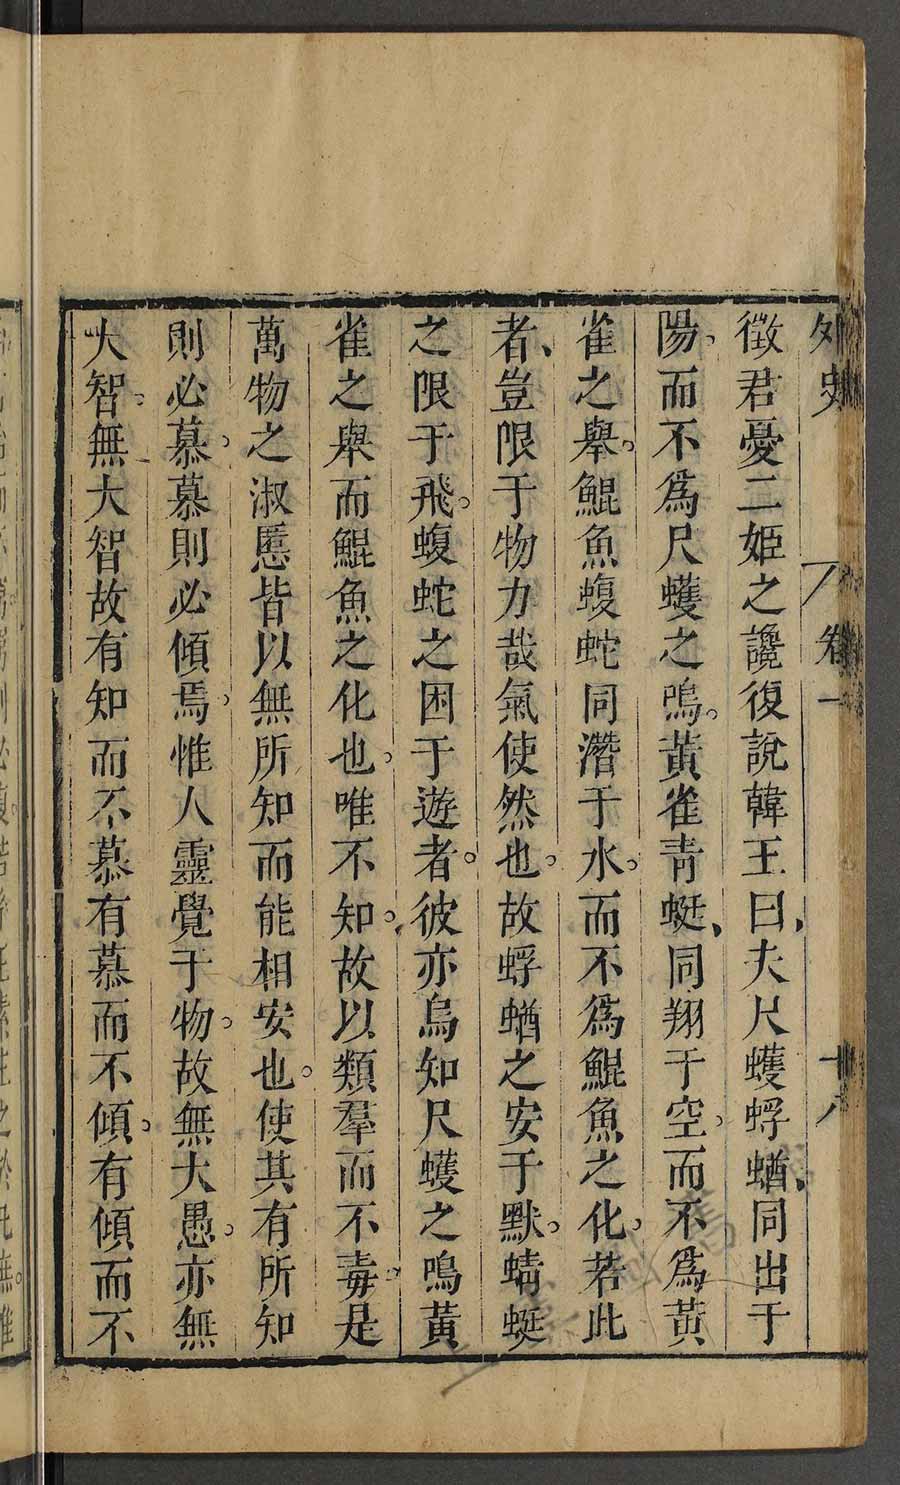 外史 卷一 十八
徵君憂二姬之讒復說韓王曰、夫尺蠖蜉蝤、同出于
陽。而不爲尺蠖之鳴。黃雀青蜓、同翔于空。而不爲黃
雀之舉。鯤魚蝮蛇同潛于水。而不爲鯤魚之化。若此
者、豈限于物力哉氣使然也。故蜉蝤之安于默。蜻蜓
之限于飛。蝮蛇之困于遊者。彼亦烏如尺蠖之鳴黃
雀之舉而鯤魚之化也。唯不知。故以類羣而不毒。是
萬物之淑慝皆以無所知而能相安也。使其有所知
則必慕。慕則必傾焉。惟人靈覺于物。故無大愚。亦無
大智。無大智故有知而不慕有慕而不傾。有傾而不